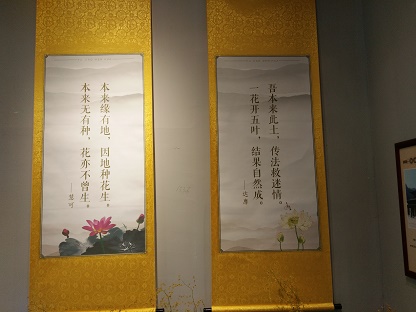 吾本来此土，传法救迷情。
一花开五叶，结果自然成。
——达摩
本来缘有地，因地种花生。
本来无有种，花亦不曾生。
——慧可